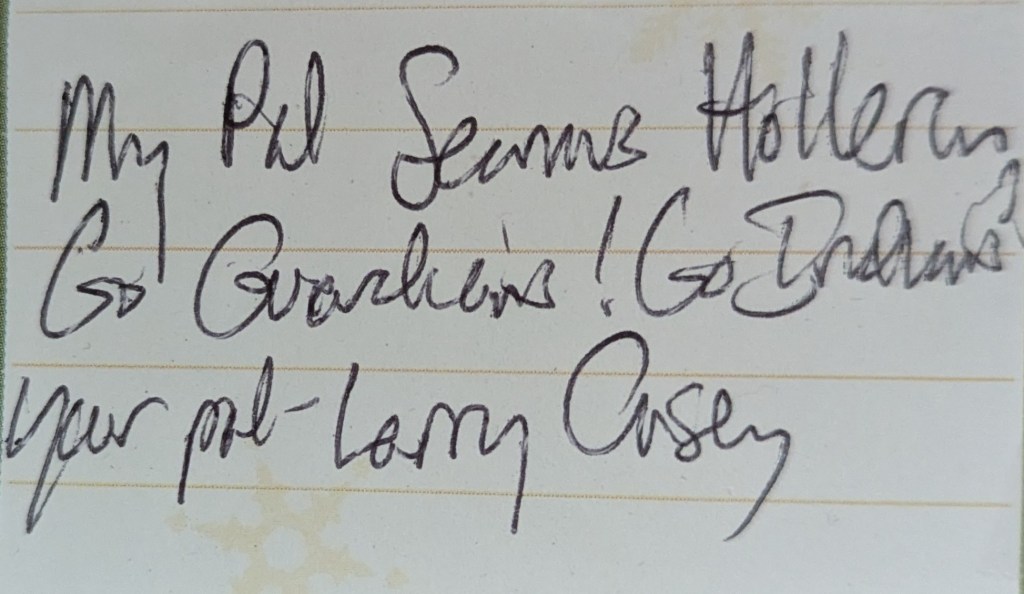 My Pal Seamus Holleran
Go Guardians! Go Indians!
your pal- Larry Casey